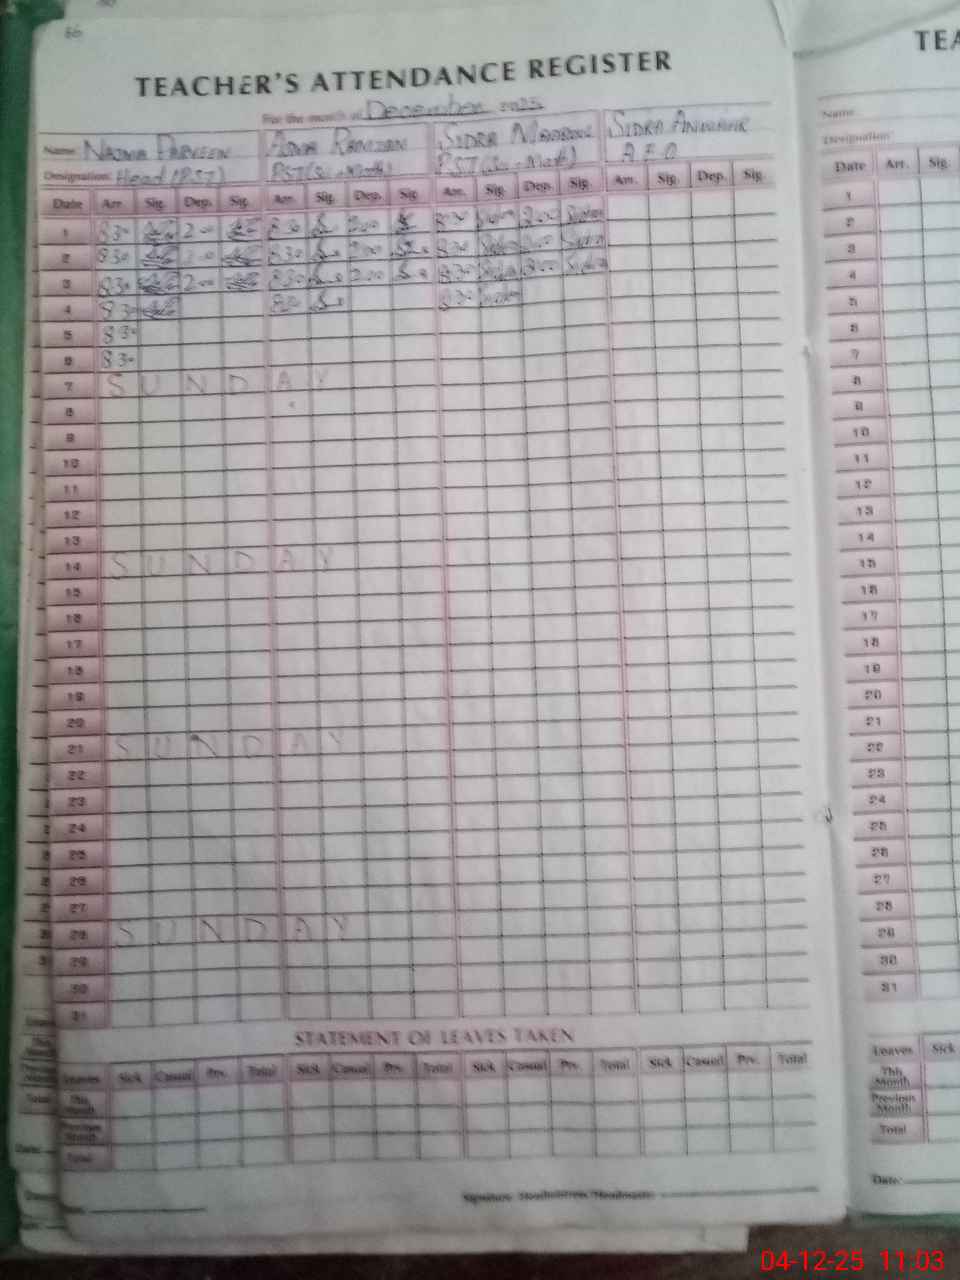 66
TEACHER'S ATTENDANCE REGISTER
For the month of December 2025
Name: NAJMA PARVEEN ASMA RAMZAN SIDRA SIDRA ANWAAR
Designation: Head (PST) PST (Sci-Math) PST (Sci-Math) A.E.O
Date Arr. Sig. Dep. Sig. Arr. Sig. Dep. Sig. Arr. Sig. Dep. Sig. Arr. Sig. Dep. Sig.
1 8:30 2:00 8:30 2:00 8:30 Sidra 2:00 Sidra
2 8:30 2:00 8:30 2:00 8:30 Sidra 2:00 Sidra
3 8:30 2:00 8:30 2:00 8:30 Sidra 2:00 Sidra
4 8:30 8:30 8:30 Sidra
5 8:30
6 8:30
7 SUNDAY
8
9
10
11
12
13
14 SUNDAY
15
16
17
18
19
20
21 SUNDAY
22
23
24
25
26
27
28 SUNDAY
29
30
31
STATEMENT OF LEAVES TAKEN
Leaves Sick Casual Prv. Total Sick Casual Prv. Total Sick Casual Prv. Total Sick Casual Prv. Total
This Month
Previous Month
Total
Signature Headmistress/Headmaster
TEA
Name:
Designation:
Date Arr. Sig.
1
2
3
4
5
6
7
8
9
10
11
12
13
14
15
16
17
18
19
20
21
22
23
24
25
26
27
28
29
30
31
Leaves Sick
This Month
Previous Month
Total
Date:
04-12-25 11:03